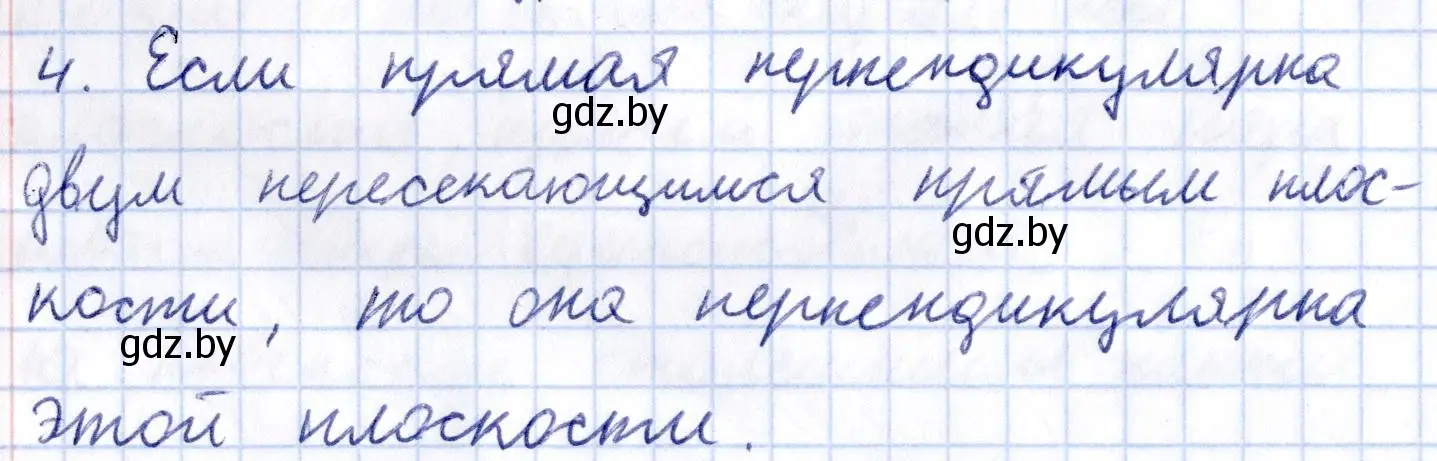 4. Если прямая перпендикулярна
gdz.by
двум пересекающимся прямым плос-
gdz.by
кости, то она перпендикулярна
gdz.by
этой плоскости.